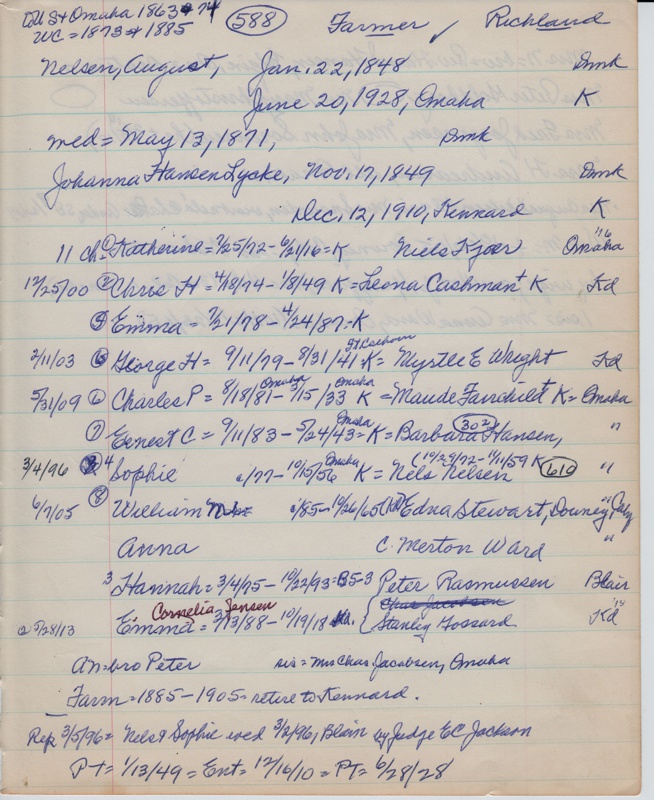 Col St Omaha 1863 + 74 (588) Farmer ✓ Richland
WC = 1873 + 1885
Nelsen, August, Jan. 22, 1848 Dmk
June 20, 1928, Omaha K
wed = May 13, 1871, Dmk
Johanna Hansen Lycke, Nov. 17, 1849 Dmk
Dec. 12, 1910, Kennard K
11 ch Katherine = 7/25/72 - 6/21/16 = K Niels Kjoer Omaha '16
12/25/00 (2) Chris H = 4/18/74 - 1/8/49 K = Leona Cashman + K Kd
(5) Emma = 7/21/78 - 4/24/87 = K
Ft Calhoun
2/11/03 (6) George H = 9/11/79 - 8/31/41 = K = Myrtle E Wright Kd
Omaha Omaha
5/31/09 (6) Charles P = 8/18/81 - 3/15/33 K = Maude Fairchild + K = Omaha
Omaha (302)
(7) Ernest C = 9/11/83 - 5/24/43 = K = Barbara Hansen, "
Omaha (10/29/72 - 11/11/59 K
3/4/96 4 Sophie 1/77 - 10/15/56 K = Nels Nelsen (610) "
6/7/05 (8) William 1/85 - 10/26/60 Edna Stewart, Downey, "
Anna C. Merton Ward "
3 Hannah = 3/4/75 - 10/22/93 = B 5-3 Peter Rasmussen Blair
Cornelia Jensen Chas Jacobsen '14
5/28/13 Emma = 3/13/88 - 10/19/18 Stanley Gossard Kd
An = bro Peter sis = Mrs Chas. Jacobsen, Omaha
Farm = 1885 - 1905 = retire to Kennard.
Rep 3/5/96 = Nels & Sophie wed 3/2/96, Blair by Judge E C Jackson
PT = 1/13/49 = Ent = 12/16/10 = PT = 6/28/28